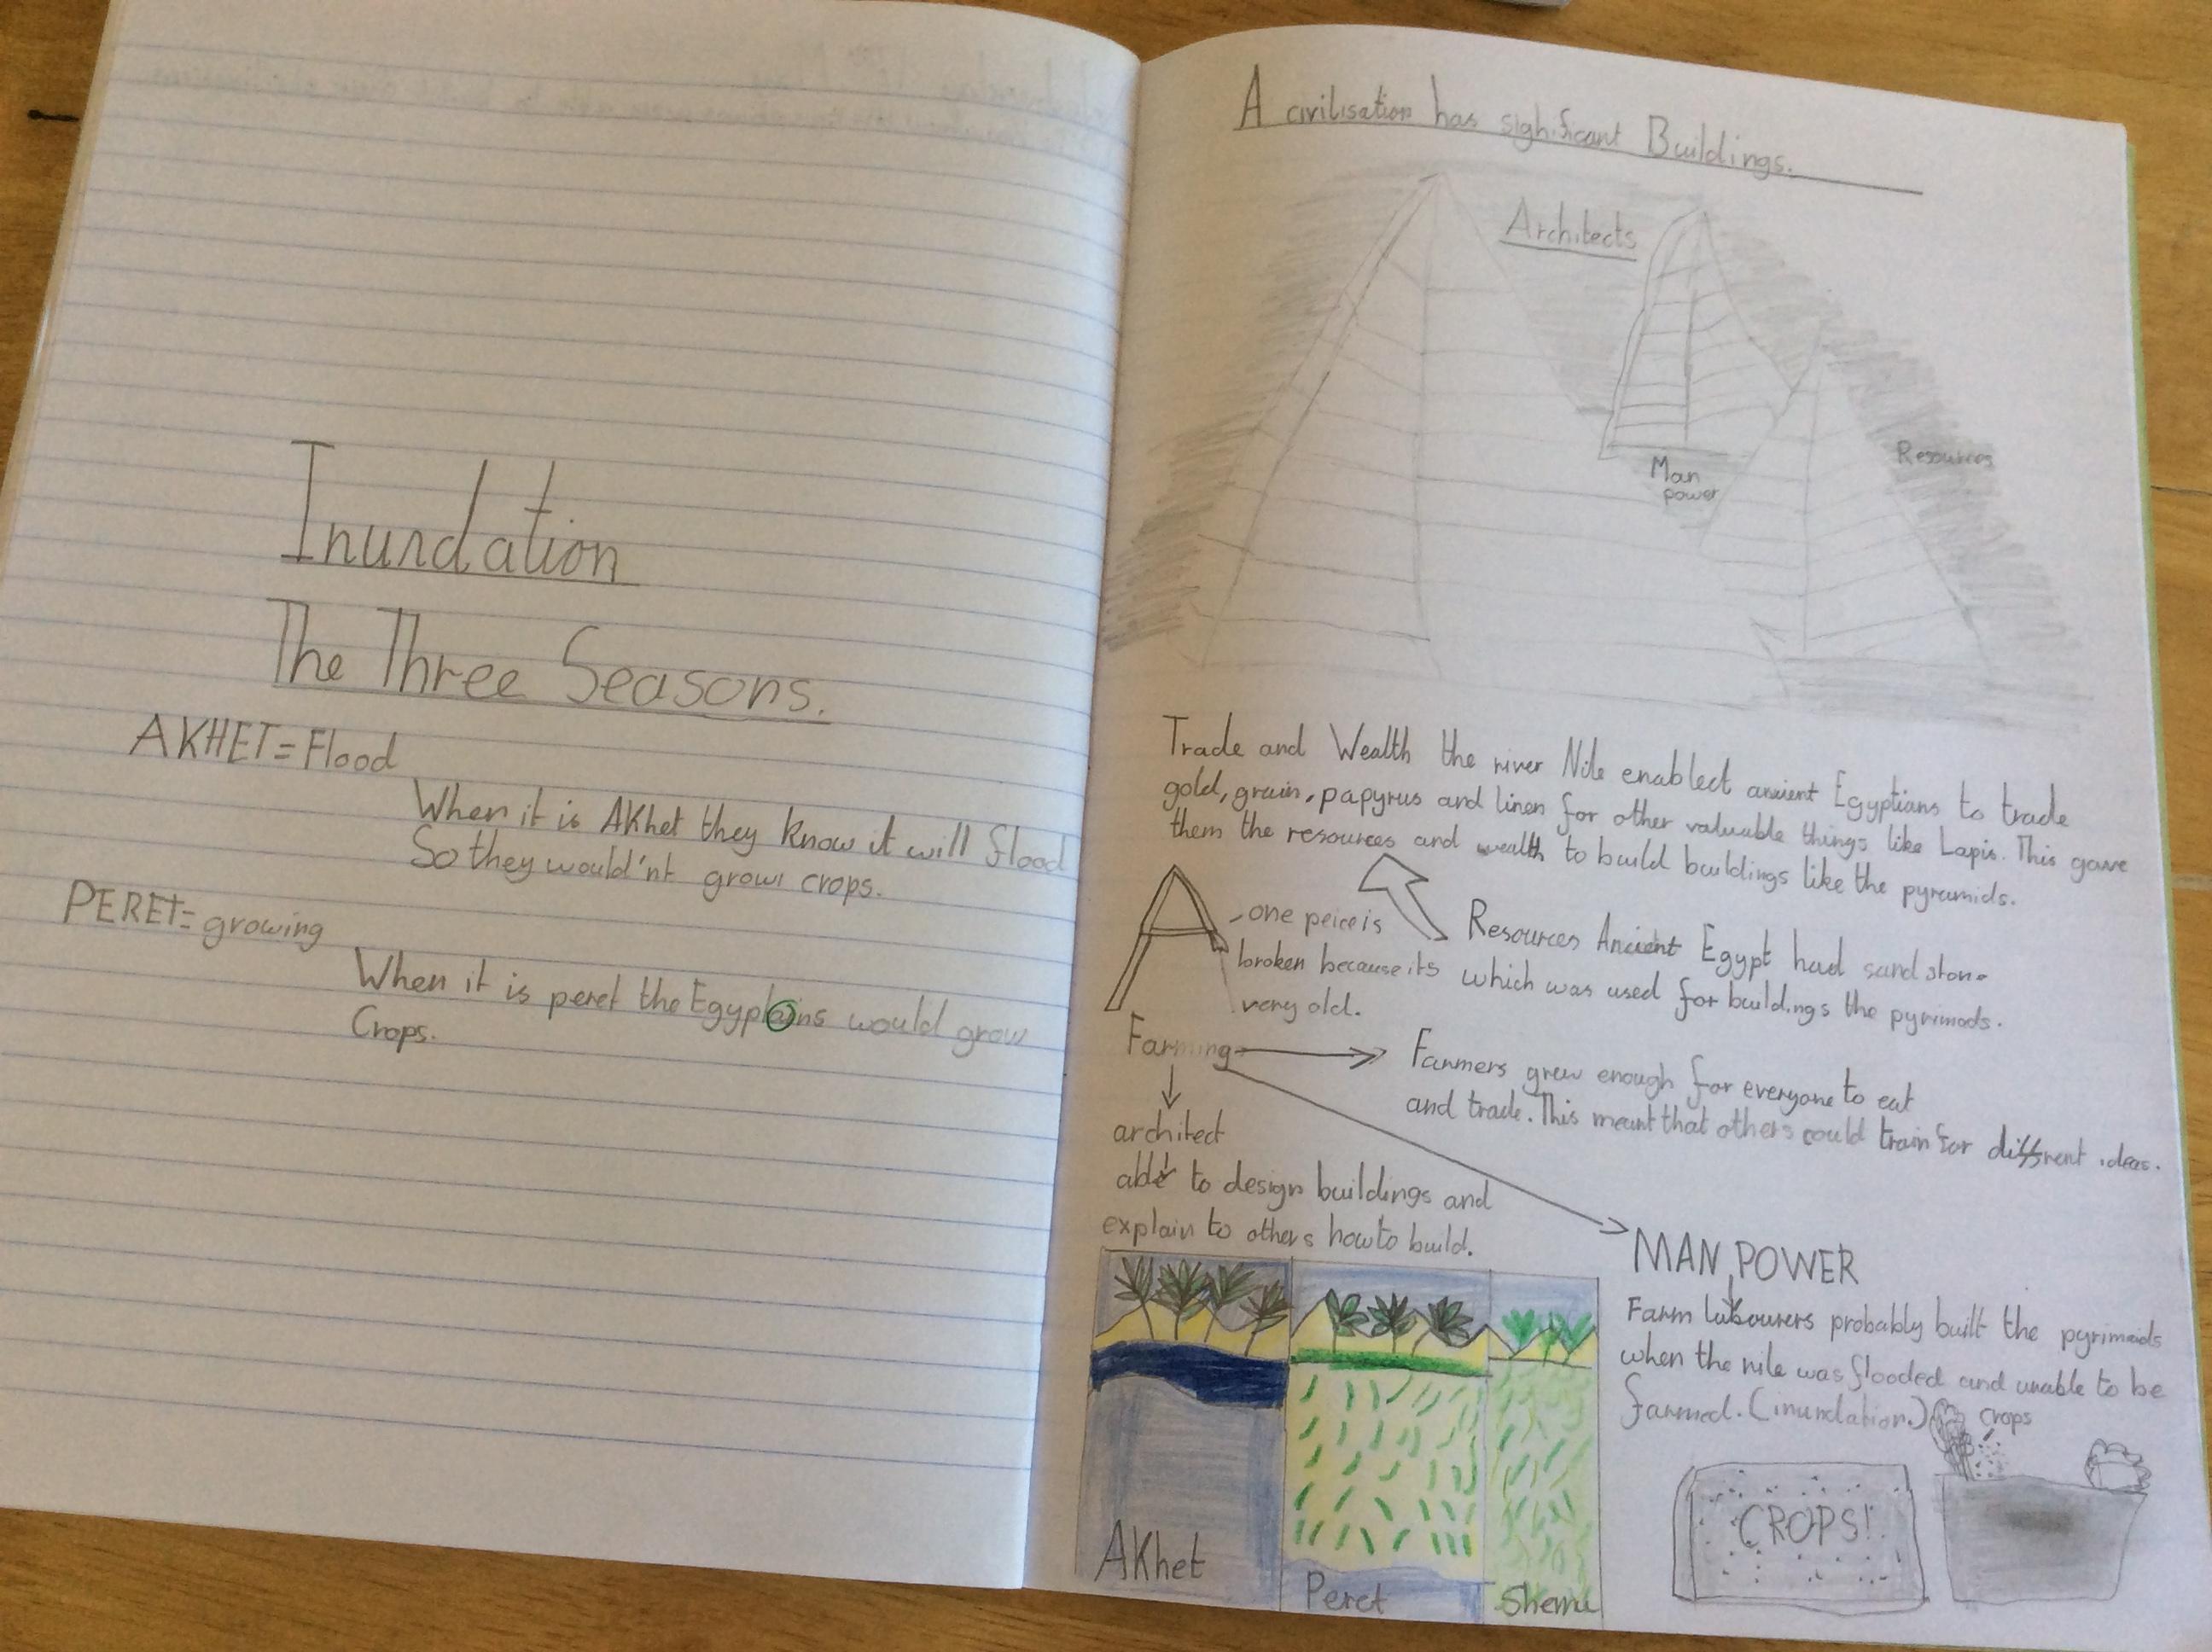 Inundation
The Three Seasons.
AKHET = Flood
When it is AKhet they know it will flood
So they would'nt grow crops.
PERET = growing
When it is peret the Egyptains would grow
Crops.
A civilisation has significant Buildings.
Architects
Man
power
Resources
Trade and Wealth the river Nile enabled ancient Egyptians to trade
gold, grain, papyrus and linen for other valuable things like Lapis. This gave
them the resources and wealth to build buildings like the pyramids.
one peice is
broken because its
very old.
Resources Ancient Egypt had sand stone
which was used for buildings the pyrimads.
Farming
Farmers grew enough for everyone to eat
and trade. This meant that others could train for diffrent ideas.
architect
able to design buildings and
explain to others how to build.
MAN POWER
Farm labourers probably built the pyrimaids
when the nile was flooded and unable to be
farmed. (inundation.)
crops
CROPS!
AKhet
Peret
Shemu